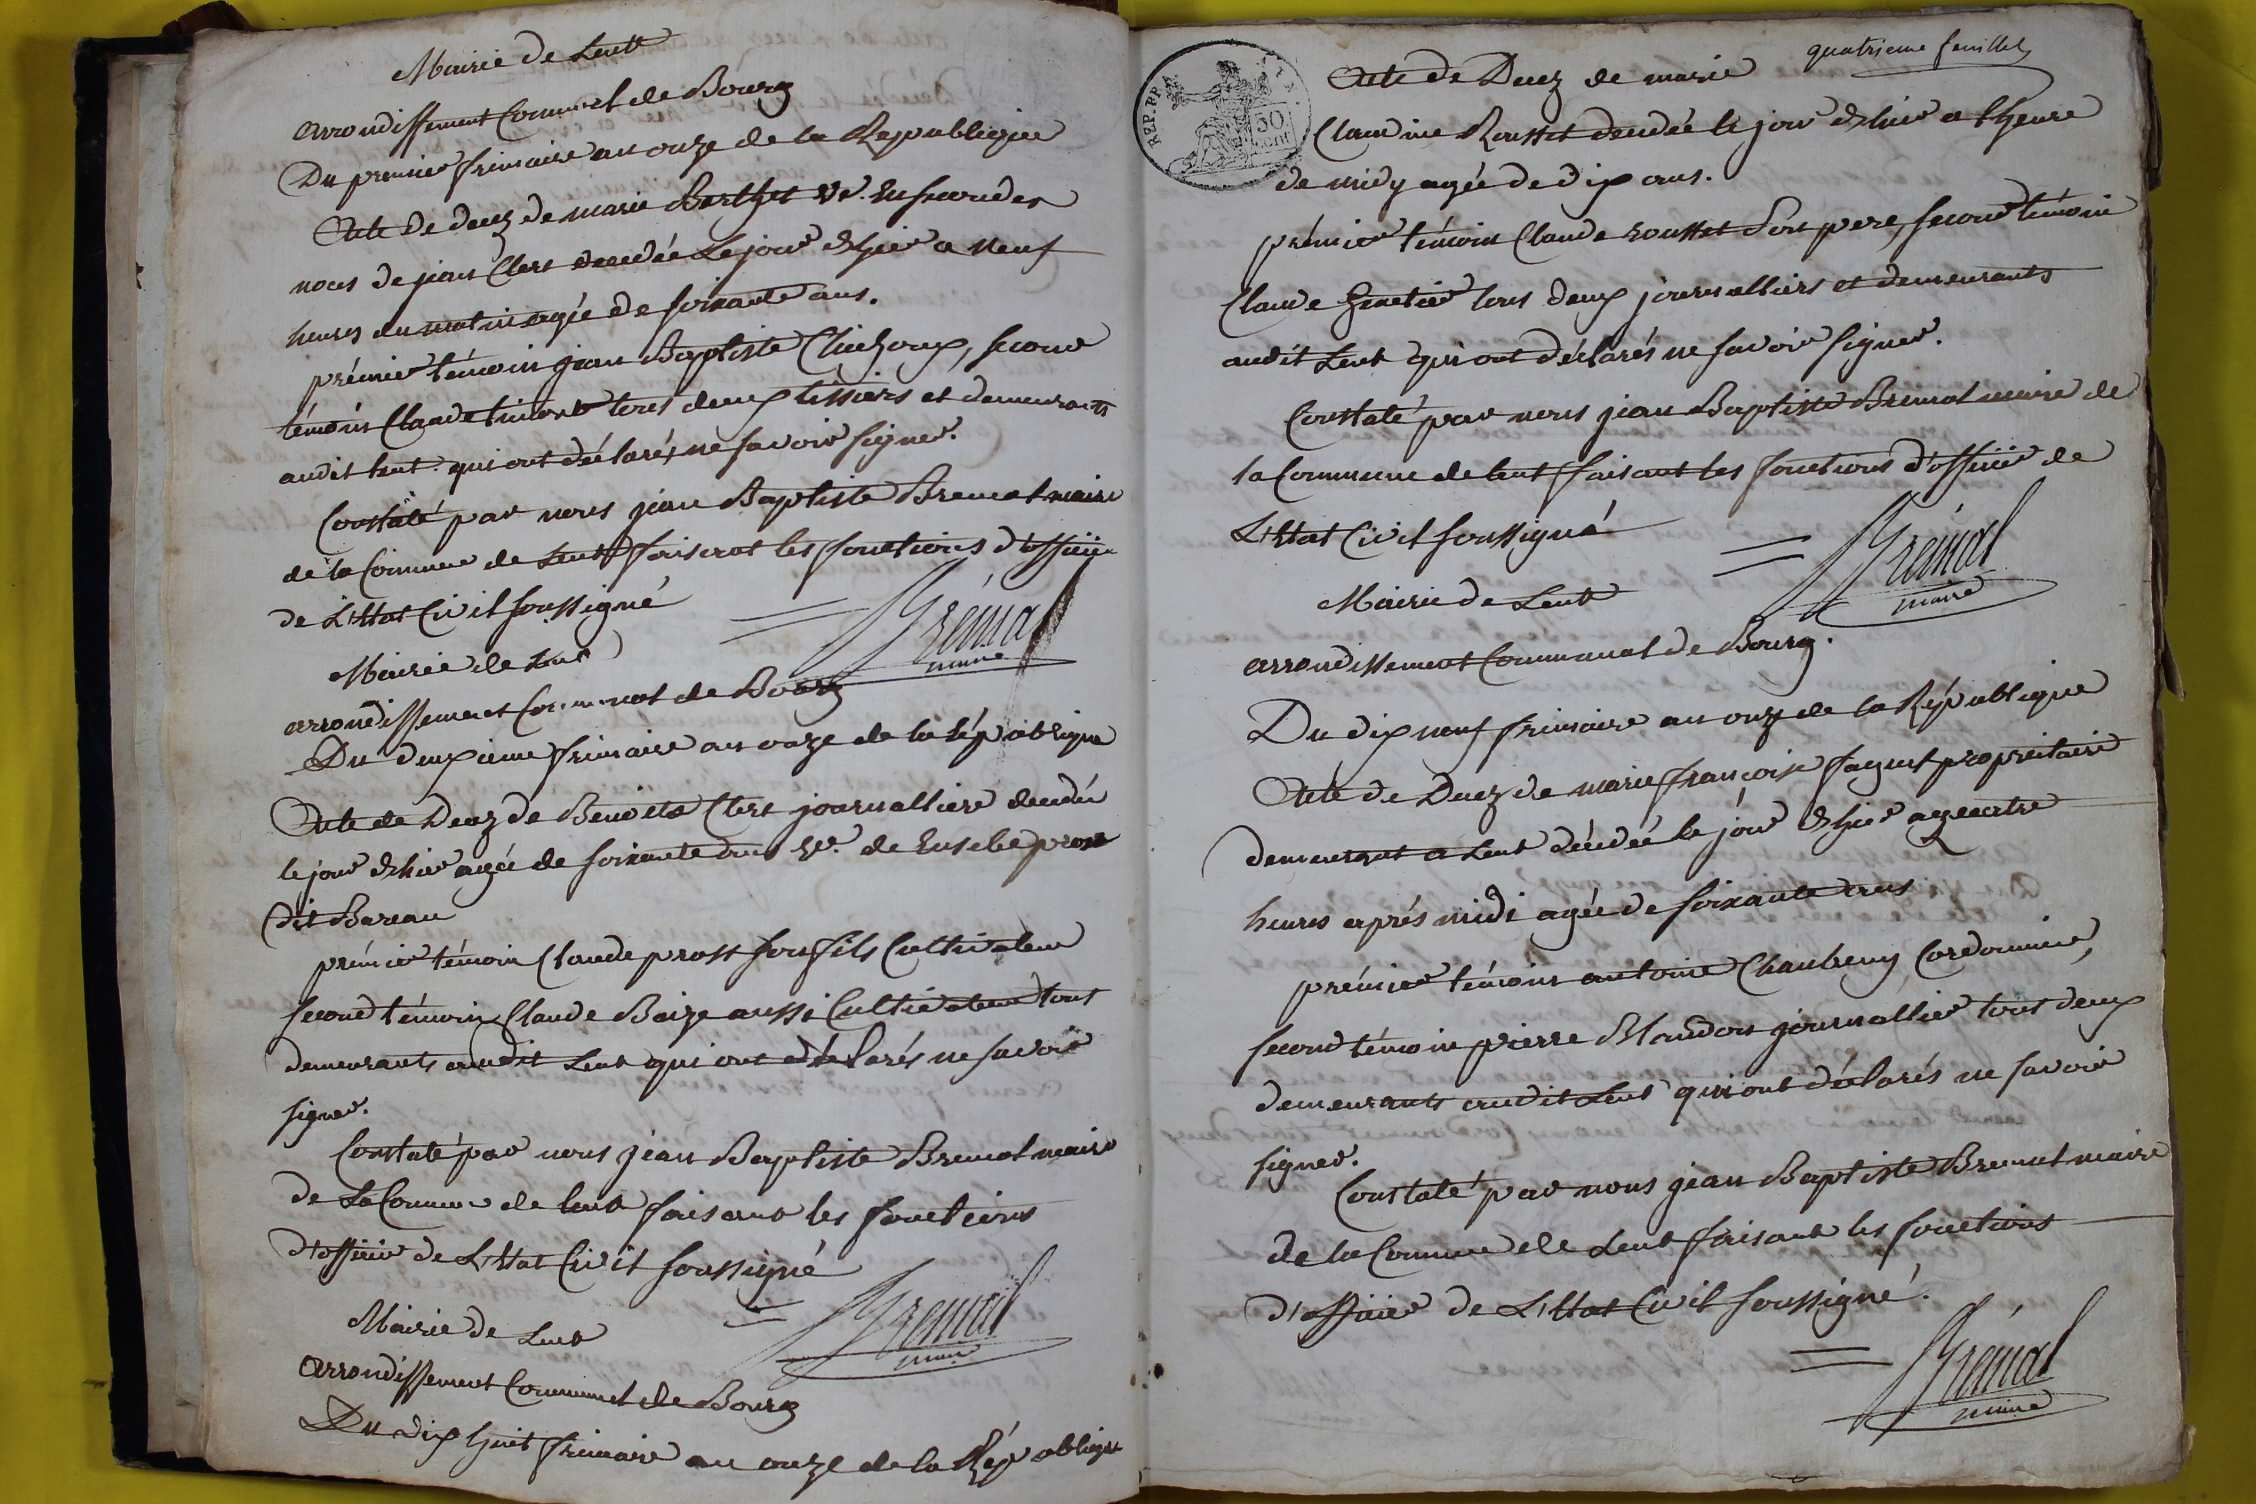 Mairie de Lent
arrondissement Communal de Bourg
Du premier frimaire an onze de la Republique
Acte de decez de marie Berthet ve. en secondes
noces de jean Clerc decedée Le jour d'hier a neuf
heures du matin agée de soixante ans.
prémier témoin jean Baptiste, second
témoin Claude tous deux tissiers et demeurants
audit Lent qui ont déclarés ne savoir signer.
Constaté par nous jean Baptiste Bremal maire
de la Commune de Lent faisant les fonctions d'officier
de L'Etat Civil soussigné
Brémal
maire
Mairie de Lent
arrondissement Communal de Bourg
Du deuxieme frimaire an onze de la république
Acte de Decez de Benoite Clerc journalliere decedée
le jour d'hier agée de soixante ans ve. de Eusebe prost
dit Bareau
prémier témoin Claude prost son fils Cultivateur
second témoin Claude Boize aussi Cultivateur tous
demeurants audit Lent qui ont déclarés ne savoir
signer.
Constaté par nous jean Baptiste Bremal maire
de La Commune de lent faisant les fonctions
d'officier de L'Etat Civil soussigné
Brémal
maire
Mairie de Lent
arrondissement Communal de Bourg
Du dix huit frimaire an onze de la République
quatrieme feuillet
REP. FR.
50 CENT
Acte de Decez de marie
Claudine Rousset decedée le jour d'hier a l'heure
de midy agée de dix ans.
prémier témoin Claude rousset son pere, second témoin
Claude tous deux journalliers et demeurants
audit Lent qui ont déclarés ne savoir signer.
Constaté par nous jean Baptiste Bremal maire de
la Commune de lent faisant les fonctions d'officier de
L'Etat Civil soussigné
Brémal
maire
Mairie de Lent
arrondissement Communal de Bourg.
Du dix neuf frimaire an onze de la République
Acte de Decez de marie françoise faguet propriétaire
demeurant a Lent décedée le jour d'hier a quatre
heures aprés midi agée de soixante ans
prémier témoin antoine Cordonnier,
second témoin pierre Blondon journallier tous deux
demeurants audit Lent qui ont déclarés ne savoir
signer.
Constaté par nous jean Baptiste Bremal maire
de la Commune de Lent faisant les fonctions
d'officier de L'Etat Civil soussigné.
Brémal
maire